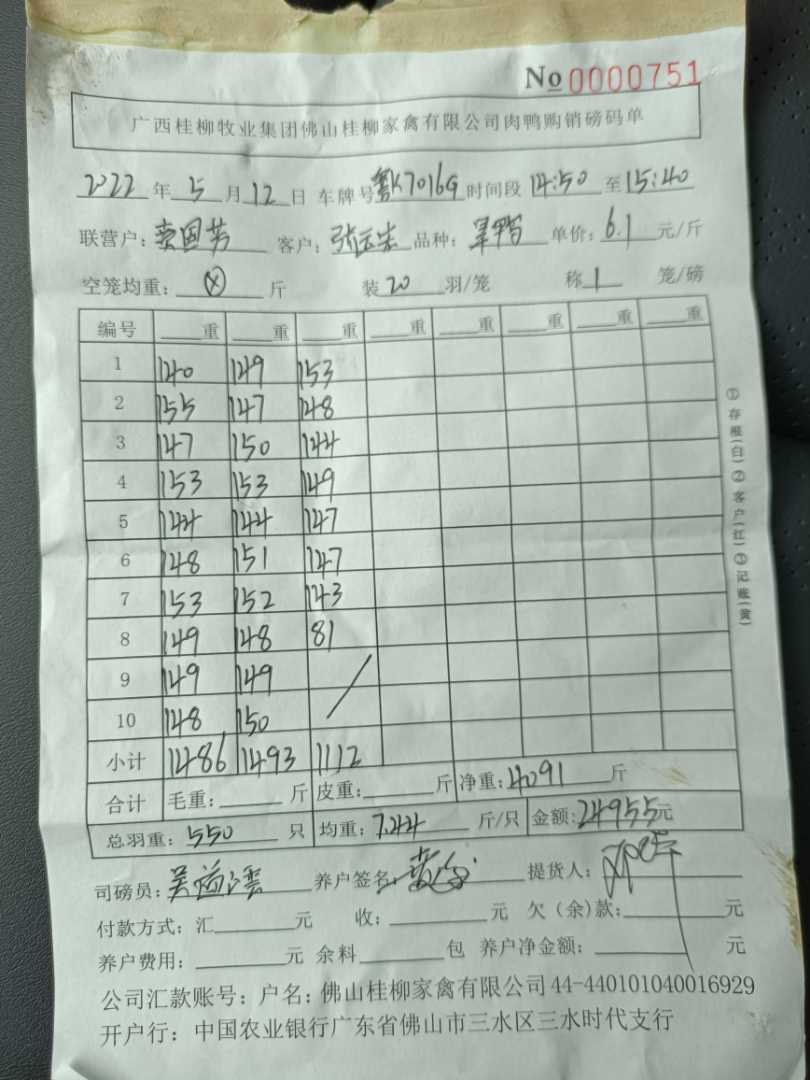 No 0000751
广西桂柳牧业集团佛山桂柳家禽有限公司肉鸭购销磅码单
2022 年 5 月 12 日 车牌号 K7016G 时间段 14:50 至 15:40
联营户: 客户: 张 品种: 单价: 6.1 元/斤
空笼均重: 斤 装 20 羽/笼 称 1 笼/磅
编号 重 重 重 重 重 重 重 重
1 140 149 153
2 155 147 148
3 147 150 144
4 153 153 149
5 144 144 147
6 148 151 147
7 153 152 143
8 149 148 81
9 149 149 /
10 148 150
小计 1486 1493 1112
合计 毛重: 斤 皮重: 斤 净重: 4091 斤
总羽重: 550 只 均重: 7.44 斤/只 金额: 24955 元
司磅员: 吴 养户签名: 提货人:
付款方式: 汇 元 收: 元 欠（余)款: 元
养户费用: 元 余料 包 养户净金额: 元
公司汇款账号: 户名: 佛山桂柳家禽有限公司 44-440101040016929
开户行: 中国农业银行广东省佛山市三水区三水时代支行
①存根(白)②客户(红)③记账(黄)